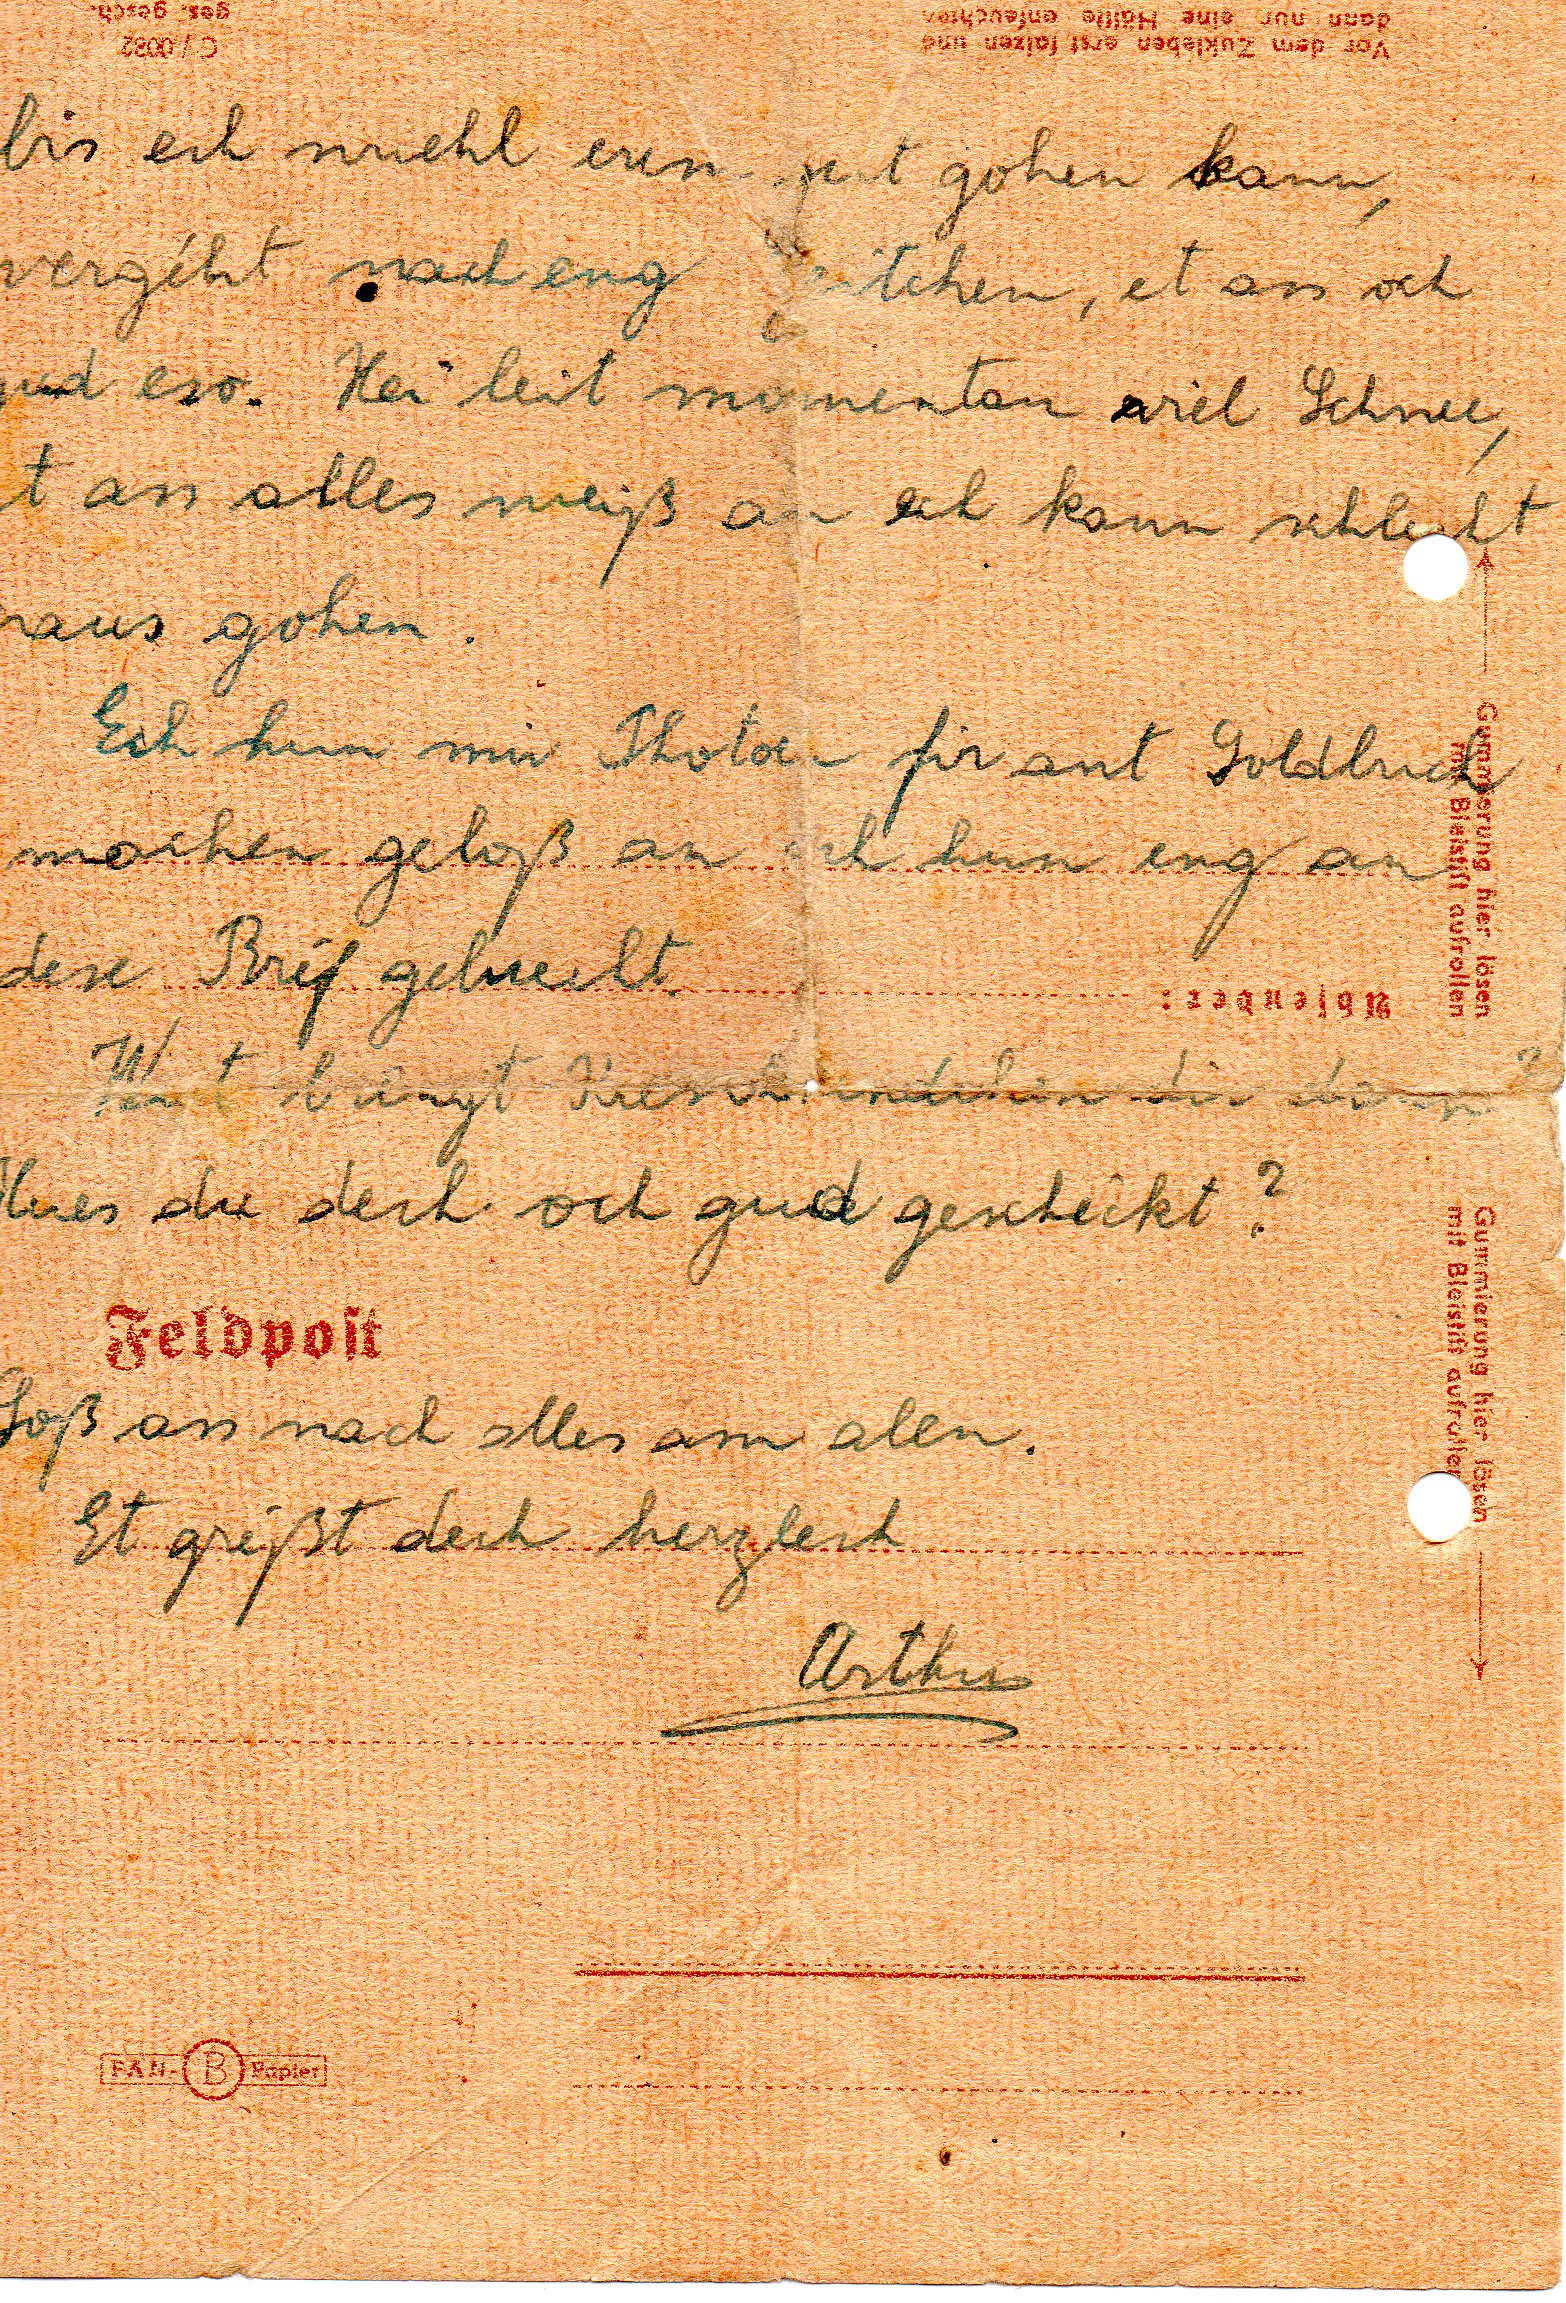 ges. gesch.
C / 0082
Vor dem Zukleben erst falzen und
dann nur eine Hälfte anfeuchten
bis ech wuehl eren gohen kann,
vergéht nach eng et ass och
gud eso. Hei leit momentan viel Schnee,
t ass alles weiß an ech kann schlecht
raus gohen.
Ech hun mir Photoen fir ant Soldbuch
machen geloß an ech hun eng an
dese Bréf geluecht.
Absender:
Wat bréngt Kreschkendchen dir dann?
Hues du dech och gud geschéckt?
Feldpost
Soß ass nach alles am alen.
Et gréßt dech herzlech
Arthur
FAN- B Papier
Gummierung hier lösen
mit Bleistift aufrollen
Gummierung hier lösen
mit Bleistift aufrollen